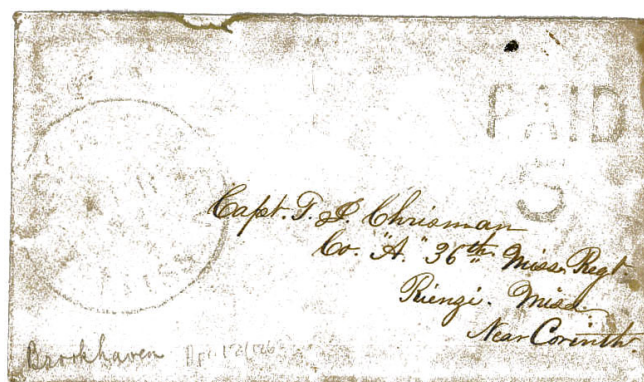 PAID
5
Capt. T. J. Chrisman
Co. "A." 36th Miss. Regt
Rienzi. Miss
Near Corinth
Brookhaven